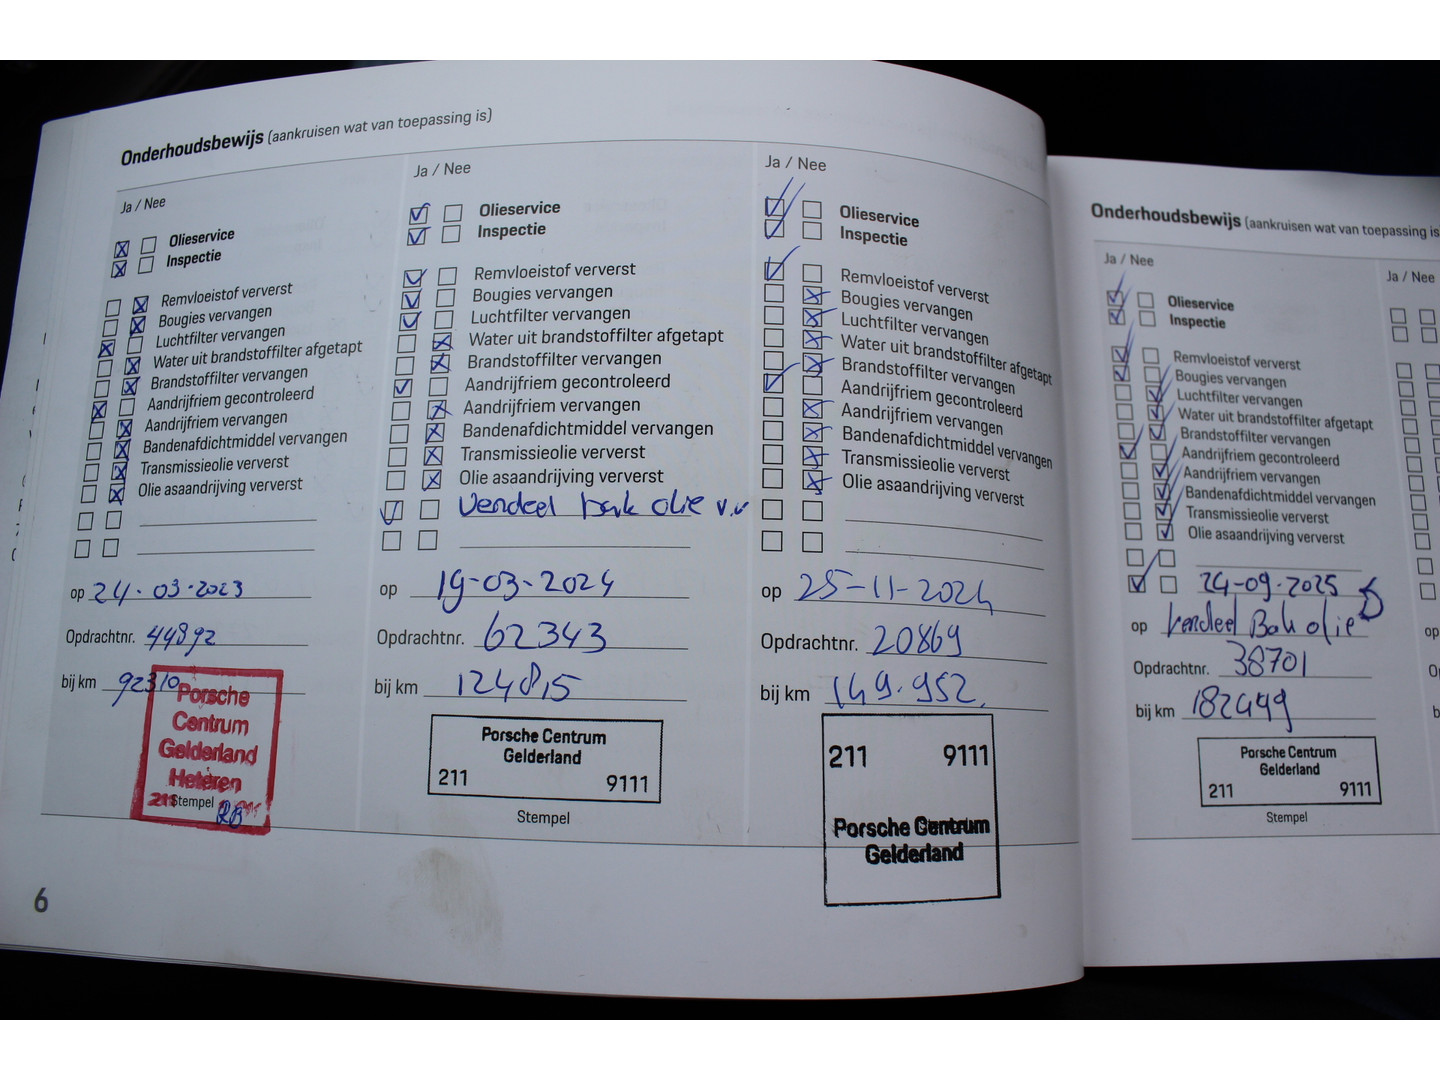 Onderhoudsbewijs (aankruisen wat van toepassing is)
Ja / Nee
Olieservice
Inspectie
Remvloeistof ververst
Bougies vervangen
Luchtfilter vervangen
Water uit brandstoffilter afgetapt
Brandstoffilter vervangen
Aandrijfriem gecontroleerd
Aandrijfriem vervangen
Bandenafdichtmiddel vervangen
Transmissieolie ververst
Olie asaandrijving ververst
op 24-03-2023
Opdrachtnr. 44892
bij km 92310
Porsche
Centrum
Gelderland
Heteren
211
Stempel
6
Ja / Nee
Olieservice
Inspectie
Remvloeistof ververst
Bougies vervangen
Luchtfilter vervangen
Water uit brandstoffilter afgetapt
Brandstoffilter vervangen
Aandrijfriem gecontroleerd
Aandrijfriem vervangen
Bandenafdichtmiddel vervangen
Transmissieolie ververst
Olie asaandrijving ververst
Verdeel bak olie v.v
op 19-03-2024
Opdrachtnr. 62343
bij km 124815
Porsche Centrum
Gelderland
211 9111
Stempel
Ja / Nee
Olieservice
Inspectie
Remvloeistof ververst
Bougies vervangen
Luchtfilter vervangen
Water uit brandstoffilter afgetapt
Brandstoffilter vervangen
Aandrijfriem gecontroleerd
Aandrijfriem vervangen
Bandenafdichtmiddel vervangen
Transmissieolie ververst
Olie asaandrijving ververst
op 25-11-2024
Opdrachtnr. 20869
bij km 149.952
211 9111
Porsche Centrum
Gelderland
Onderhoudsbewijs (aankruisen wat van toepassing is
Ja / Nee
Olieservice
Inspectie
Remvloeistof ververst
Bougies vervangen
Luchtfilter vervangen
Water uit brandstoffilter afgetapt
Brandstoffilter vervangen
Aandrijfriem gecontroleerd
Aandrijfriem vervangen
Bandenafdichtmiddel vervangen
Transmissieolie ververst
Olie asaandrijving ververst
24-09-2025
op Verdeel Bak olie
Opdrachtnr. 38701
bij km 182499
Porsche Centrum
Gelderland
211 9111
Stempel
Ja / Nee
op